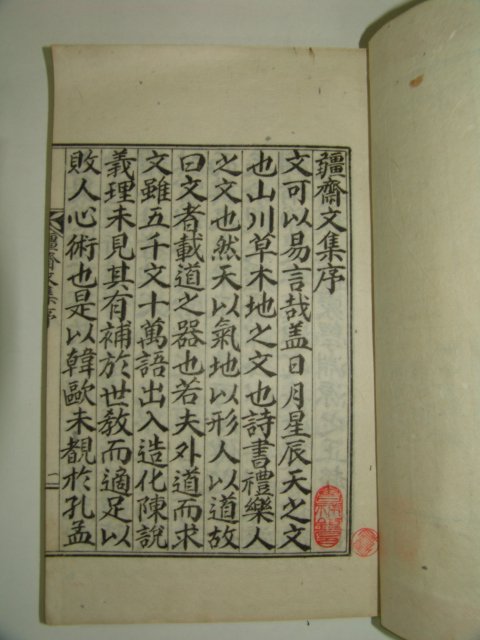 疆齋文集序
文可以易言哉盖日月星辰天之文
也山川草木地之文也詩書禮樂人
之文也然天以氣地以形人以道故
曰文者載道之器也若夫外道而求
文雖五千文十萬語出入造化陳說
義理未見其有補於世教而適足以
敗人心術也是以韓歐未覩於孔孟
疆齋文集序
一